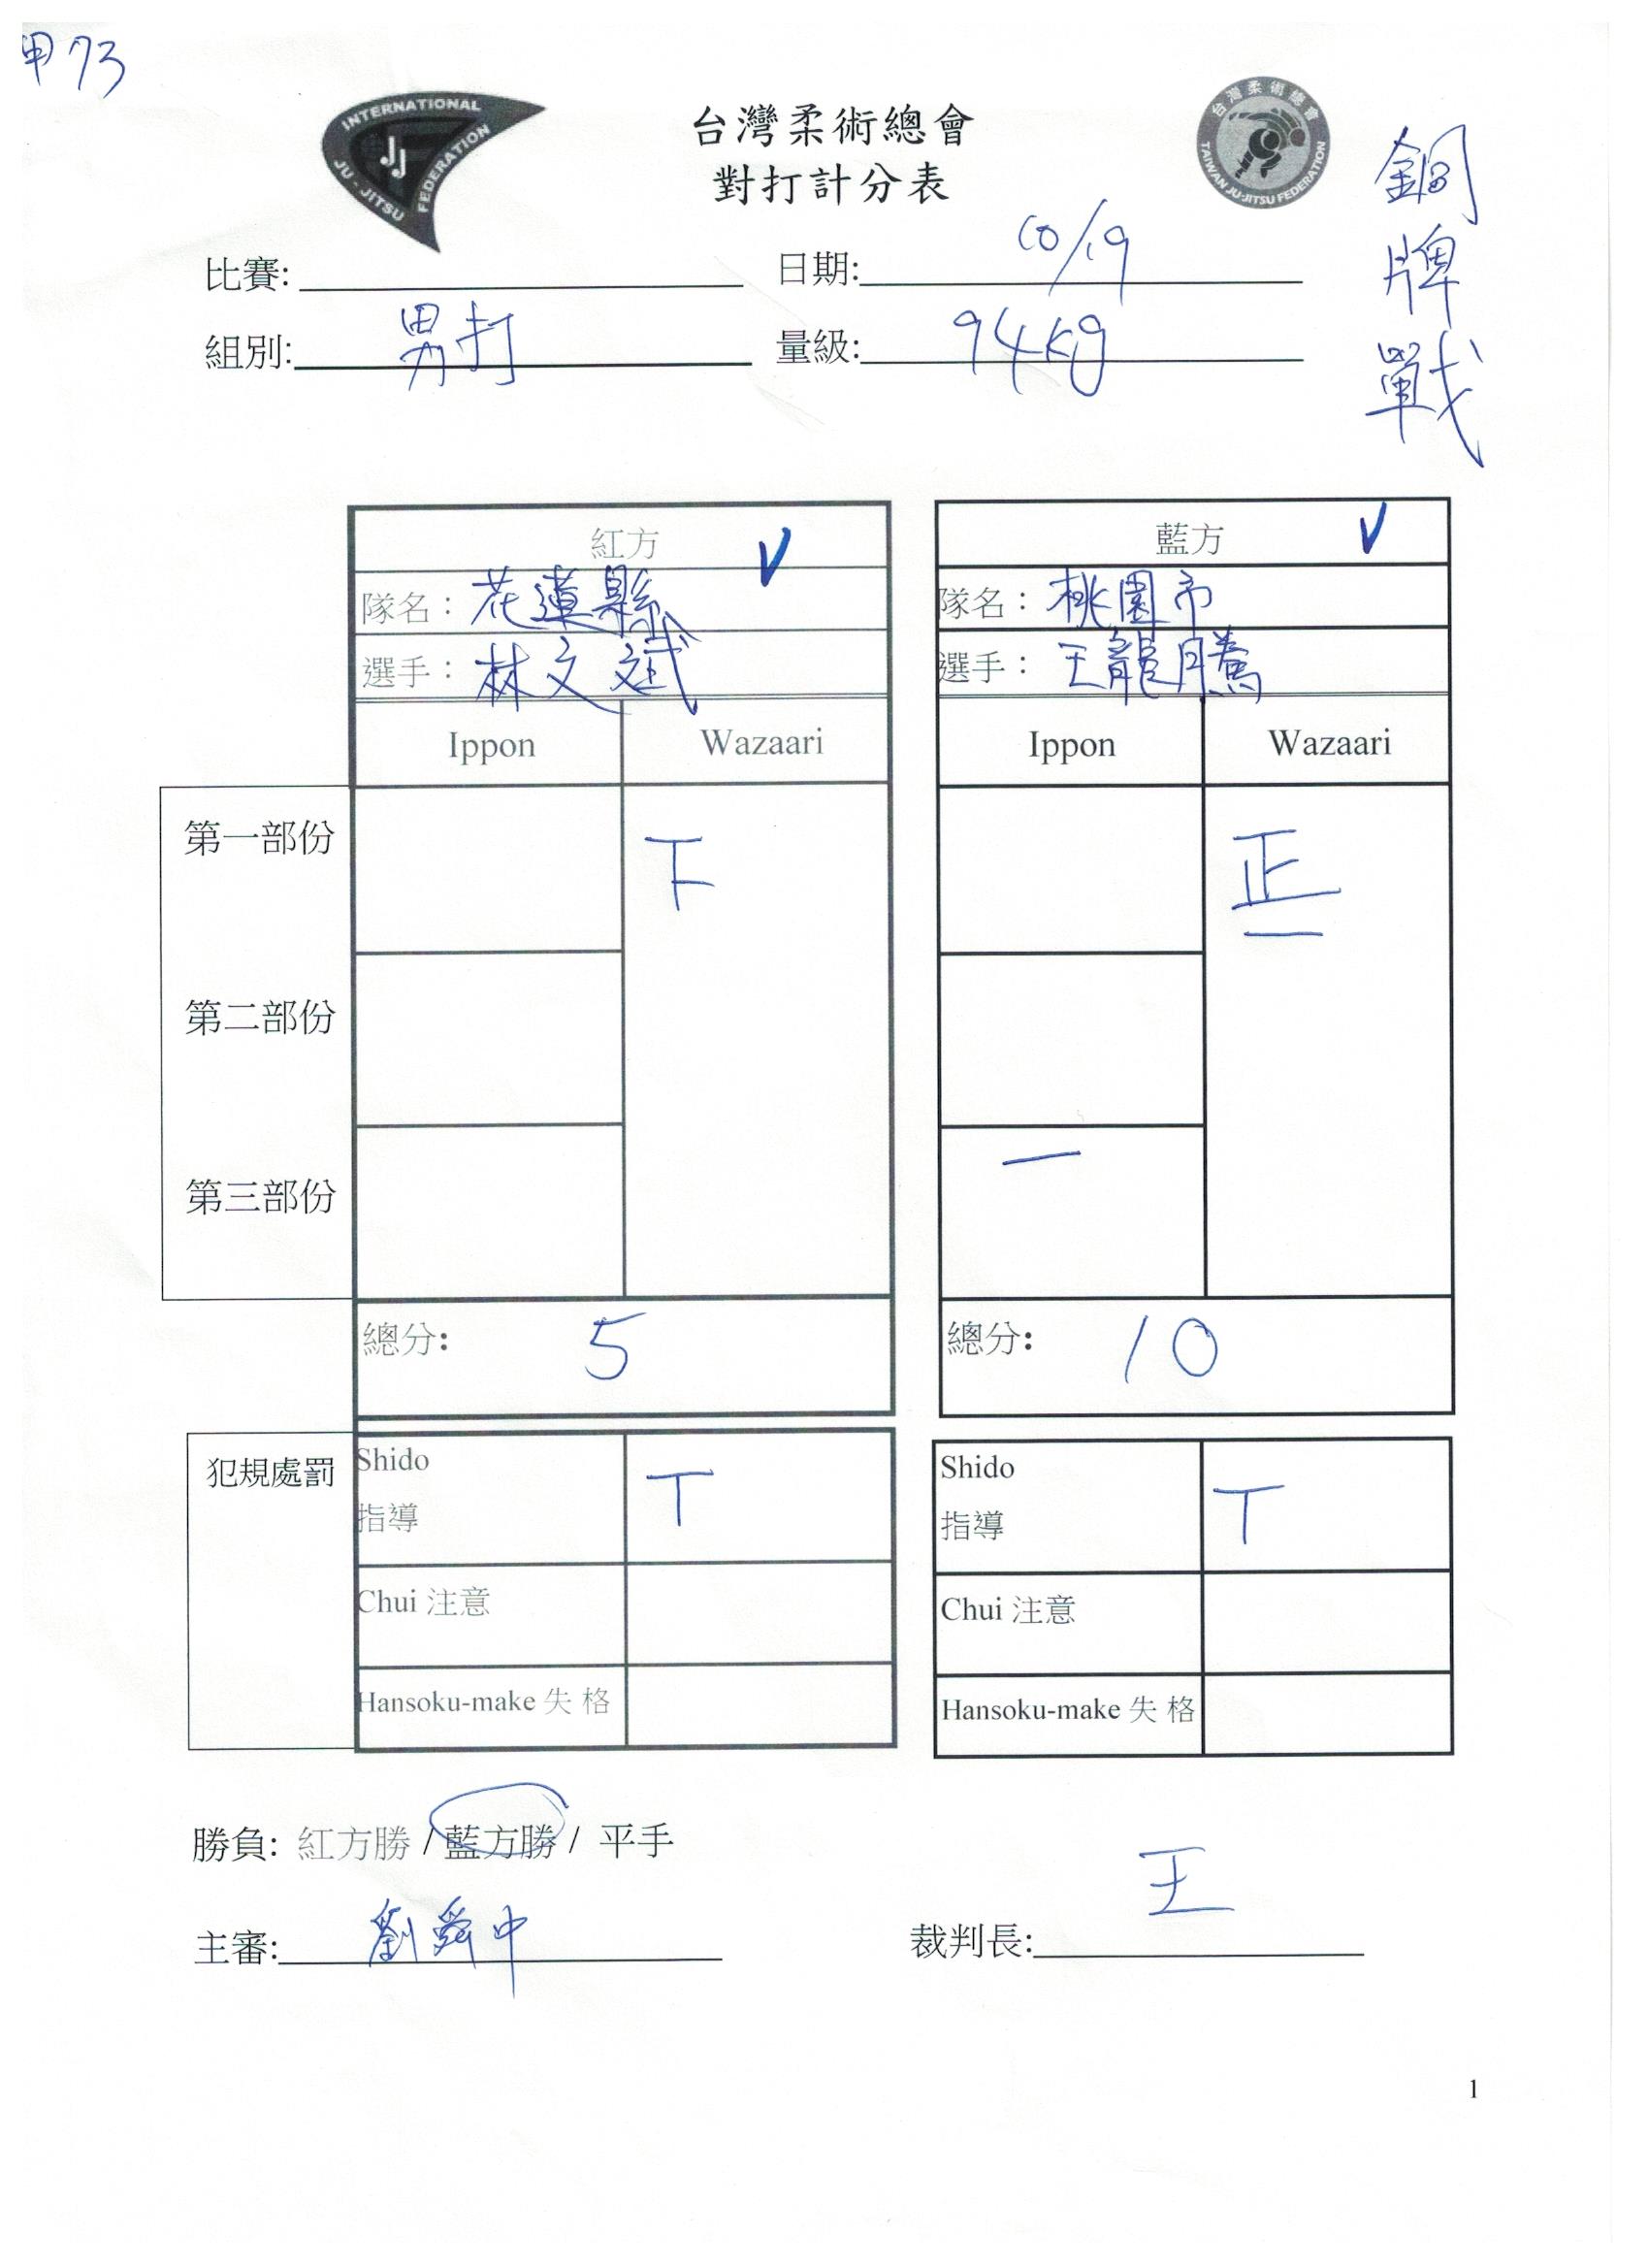 甲73
INTERNATIONAL
JU-JITSU
FEDERATION
JJ
台灣柔術總會
對打計分表
台灣柔術總會
TAIWAN JU-JITSU FEDERATION
銅牌戰
比賽: 日期: 10/19
組別: 男打 量級: 94kg
紅方 V 藍方 V
隊名：花蓮縣 隊名：桃園市
選手：林文斌 選手：王龍騰
Ippon Wazaari Ippon Wazaari
第一部份 下 正 一
第二部份
第三部份 一
總分: 5 總分: 10
犯規處罰 Shido 指導 T Shido 指導 T
Chui 注意 Chui 注意
Hansoku-make 失 格 Hansoku-make 失 格
勝負: 紅方勝 / 藍方勝 / 平手
主審: 劉舜中 裁判長: 王
1